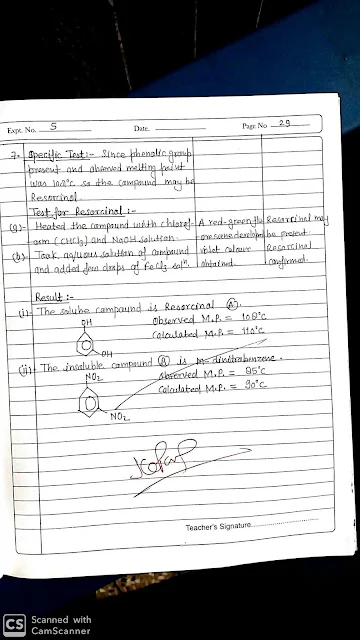 Expt. No. 5 Date. Page No 29
7. Specific Test:- Since phenolic group
present and observed melting point
was 108°c so the compound may be
Resorcinol
Test for Resorcinol:-
(a)- Heated the compound with chlorof- A red-green flu Resorcinol may
orm (CHCl3) and NaOH solution orescence developed be present.
(b). Took aqueous solution of compound violet colour Resorcinol
and added few drops of FeCl3 solⁿ. obtained. confirmed.
Result:-
(i)- The soluble compound is Resorcinol (A).
OH Observed M.P. = 108°C
Calculated M.P. = 110°C
OH
(ii)- The insoluble compound (B) is m-dinitrobenzene.
NO2 Observed M.P. = 85°C
Calculated M.P. = 90°C
NO2
Teacher's Signature
CS Scanned with
CamScanner